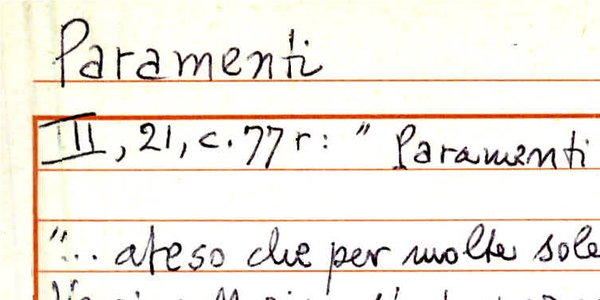 Paramenti
III, 21, c. 77 r: " Paramenti
"... ateso che per molte sole